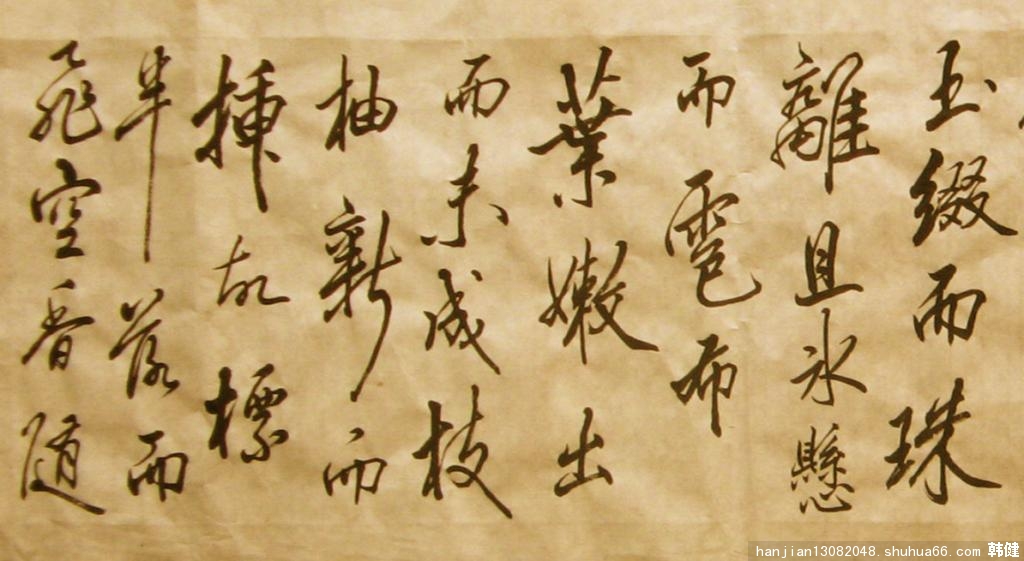 玉缀而珠
離且氷懸
而雹布
葉嫩出
而未成枝
抽新而
插故標
半落而
飛空香随
hanjian13082048.shuhua66.com 韩健